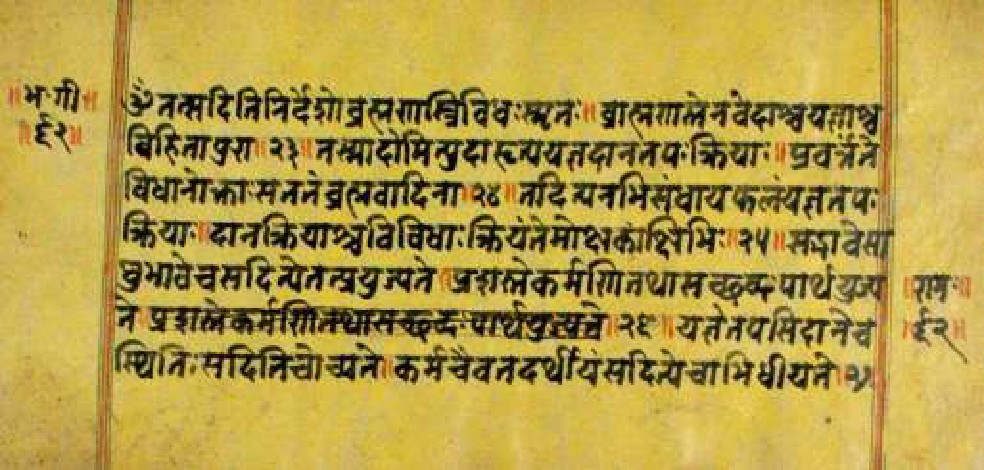 ॥भ॰गी॥
॥६२॥
ॐतत्सदितिनिर्देशोब्रह्मणस्त्रिविधःस्मृतः॥ब्राह्मणास्तेनवेदाश्चयज्ञाश्च
विहिताःपुरा॥२३॥तस्मादोमित्युदाहृत्ययज्ञदानतपःक्रियाः॥प्रवर्त्तंते
विधानोक्ताःसततंब्रह्मवादिनां॥२४॥तदित्यनभिसंधायफलंयज्ञतपः
क्रियाः॥दानक्रियाश्चविविधाःक्रियंतेमोक्षकांक्षिभिः॥२५॥सद्भावेसा
धुभावेचसदित्येतत्प्रयुज्यते॥प्रशस्तेकर्मणितथासच्छब्दःपार्थयुज्य
ते॥प्रशस्तेकर्मणितथासच्छब्दःपार्थ॥२६॥यज्ञेतपसिदानेच
स्थितिःसदितिचोच्यते॥कर्मचैवतदर्थीयंसदित्येवाभिधीयते॥२७
॥राम॰॥
॥६२॥